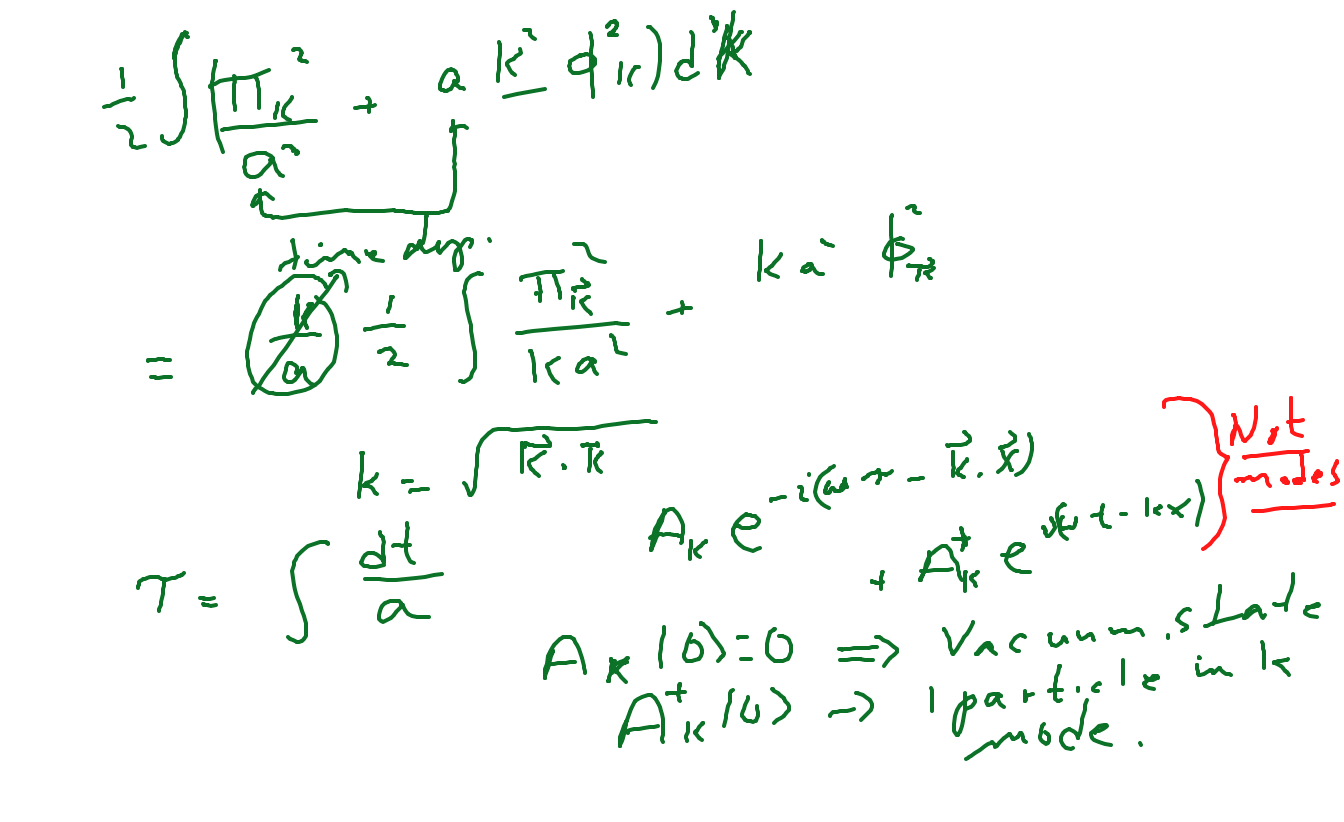 1/2 ∫ (π_k² / a³ + a k² φ_k²) d³k
time dep.
= k/a 1/2 ∫ π_k⃗² / k a² + k a² φ_k⃗²
k = √(k⃗ . k⃗)
A_k e^{-i(ωτ - k⃗.x⃗)}
+ A_k^+ e^{i(ωt - kx)}
Not
modes
τ = ∫ dt/a
A_k |0> = 0 => Vacuum state
A_k^+ |0> -> 1 particle in k
mode.